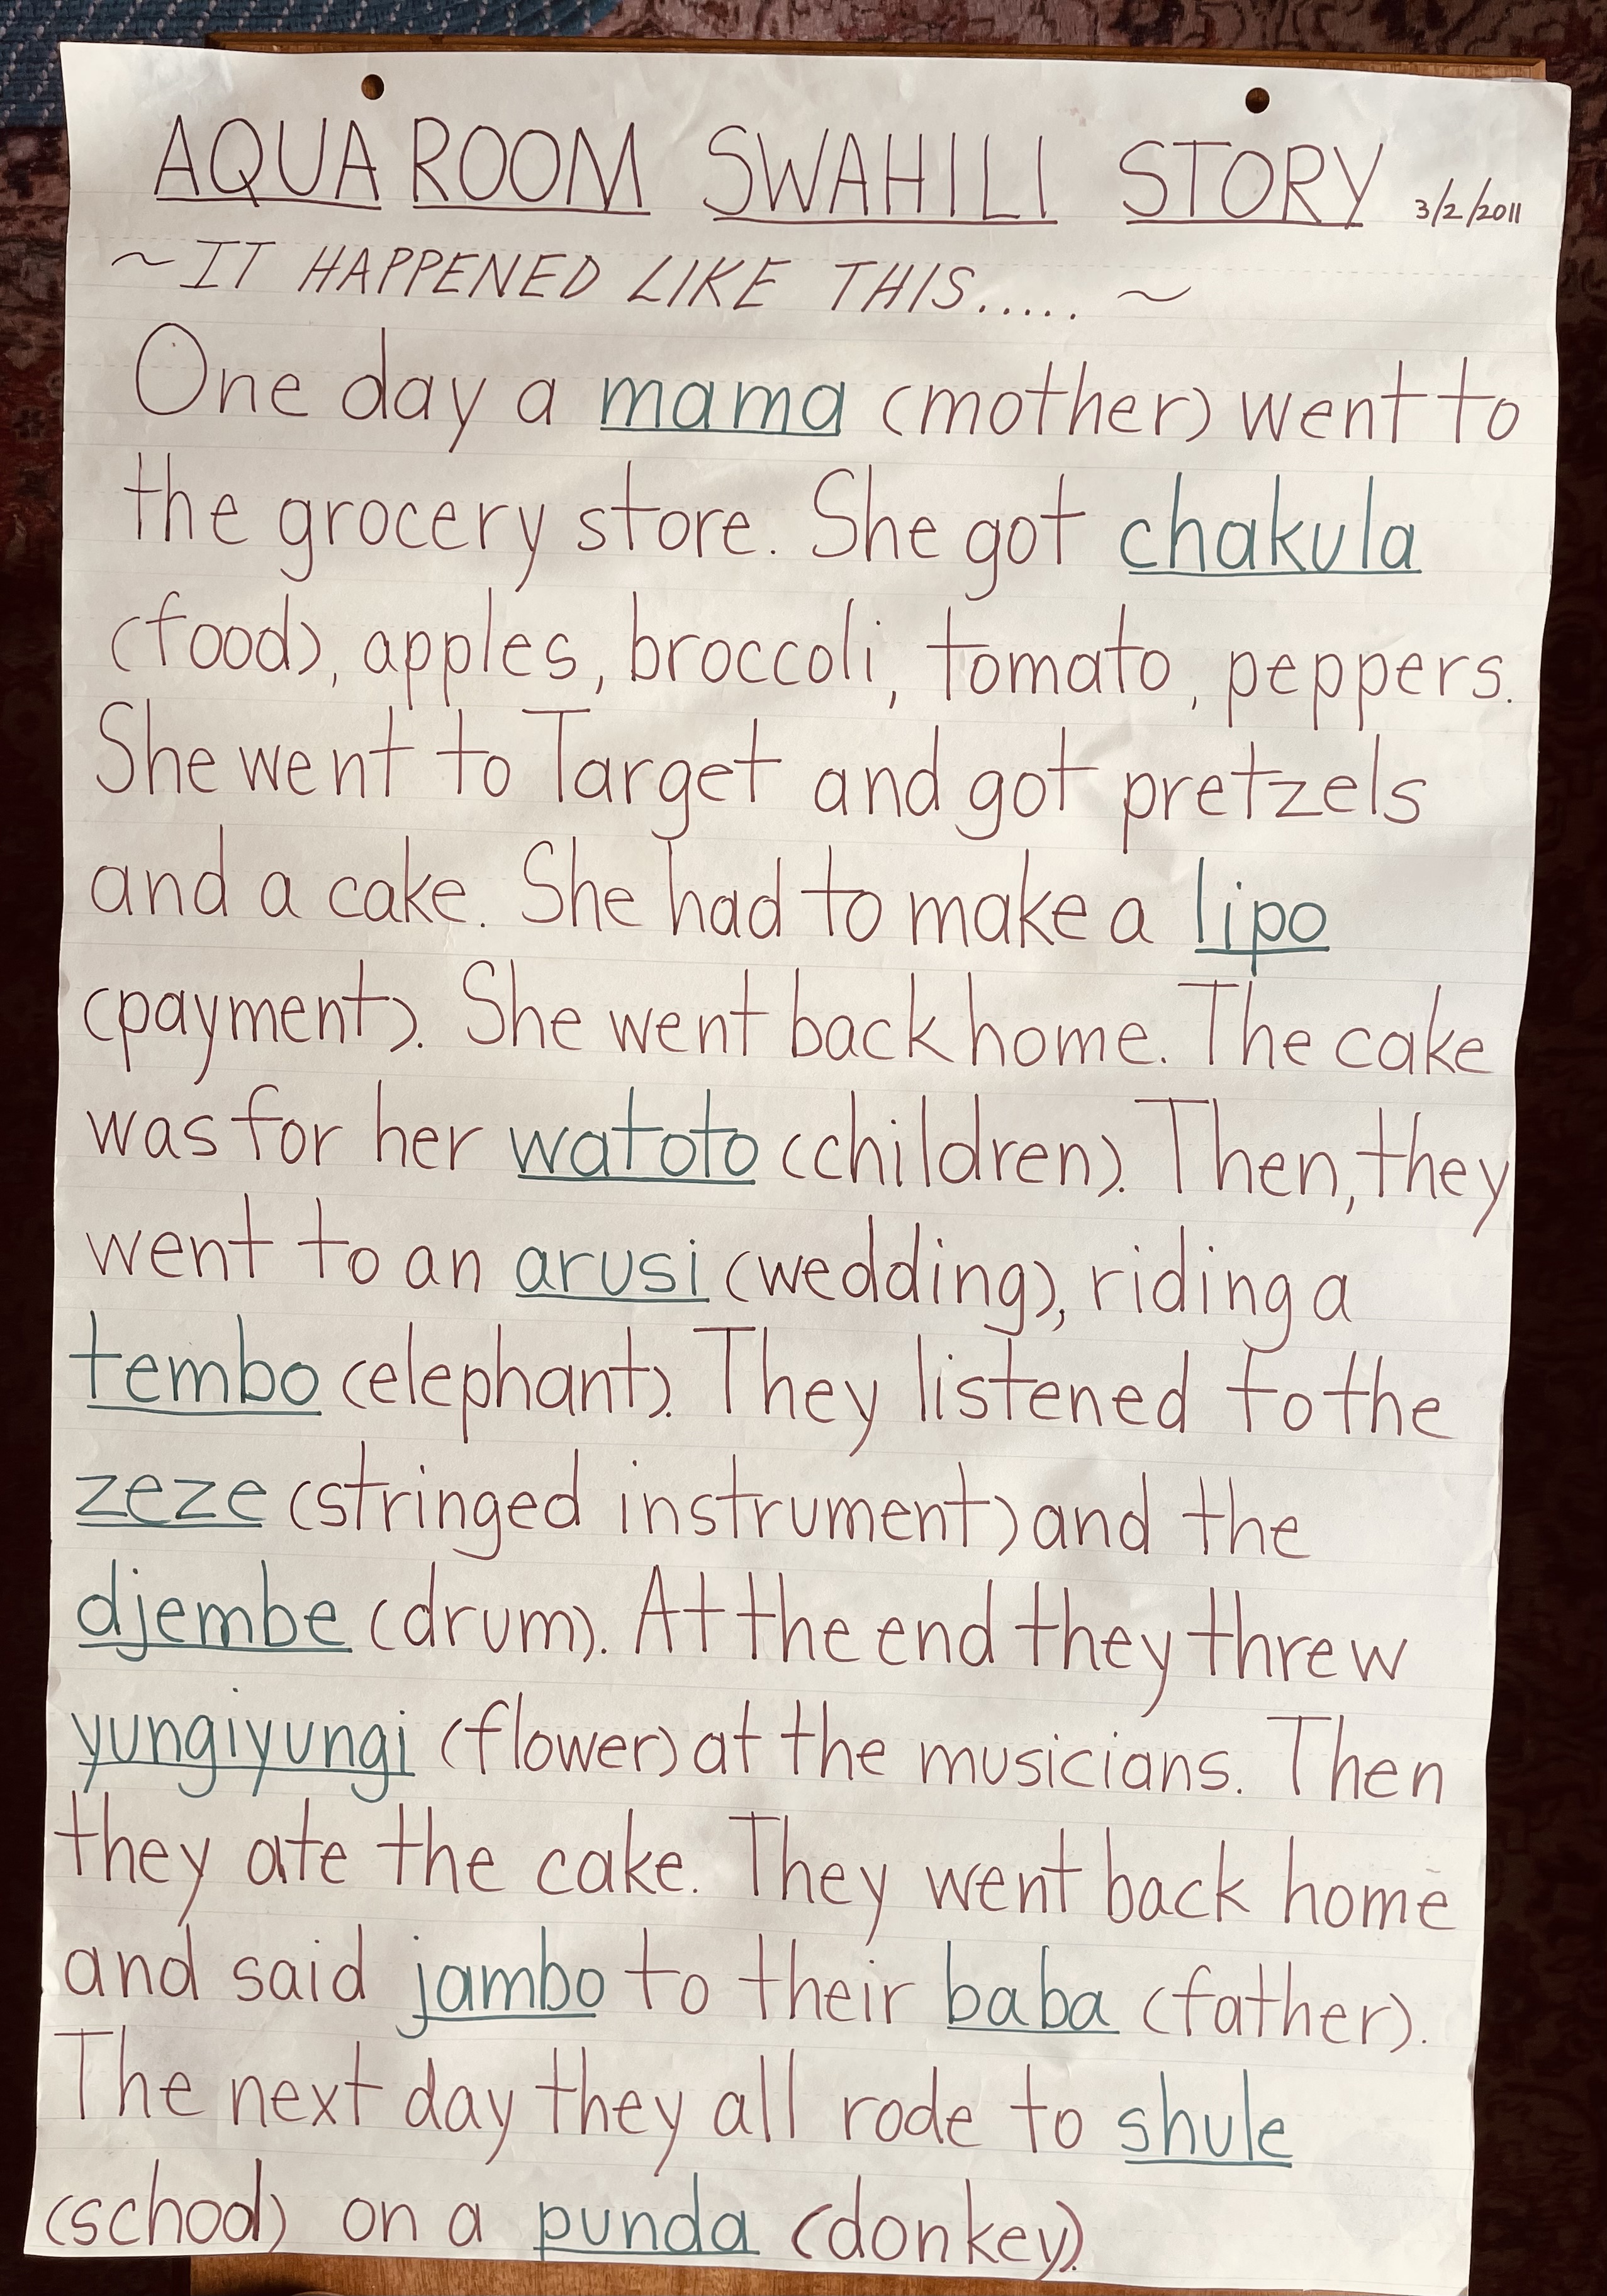 AQUA ROOM SWAHILI STORY 3/2/2011
~IT HAPPENED LIKE THIS..... ~
One day a mama (mother) went to
the grocery store. She got chakula
(food), apples, broccoli, tomato, peppers.
She went to Target and got pretzels
and a cake. She had to make a lipo
(payment). She went back home. The cake
was for her watoto (children). Then, they
went to an arusi (wedding), riding a
tembo (elephant). They listened to the
zeze (stringed instrument) and the
djembe (drum). At the end they threw
yungiyungi (flower) at the musicians. Then
they ate the cake. They went back home
and said jambo to their baba (father).
The next day they all rode to shule
(school) on a punda (donkey).